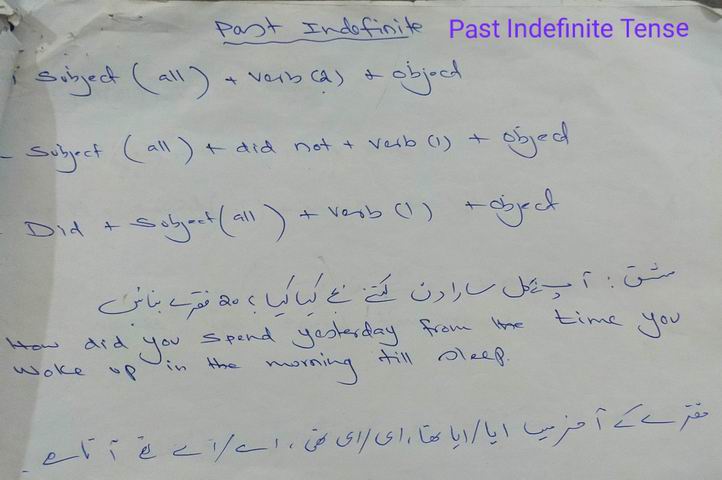 Past Indefinite Past Indefinite Tense
Subject (all) + Verb (2) + object
Subject (all) + did not + Verb (1) + object
Did + Subject (all) + Verb (1) + object
مشق : آپ نے کل سارا دن کیا کیا ؟ 20 فقرے بنائیں
How did you spend yesterday from the time you
woke up in the morning till sleep.
فقرے کے آخر میں ایا/ایا تھا، ای/ای تھی، اے/اے تھے آتا ہے